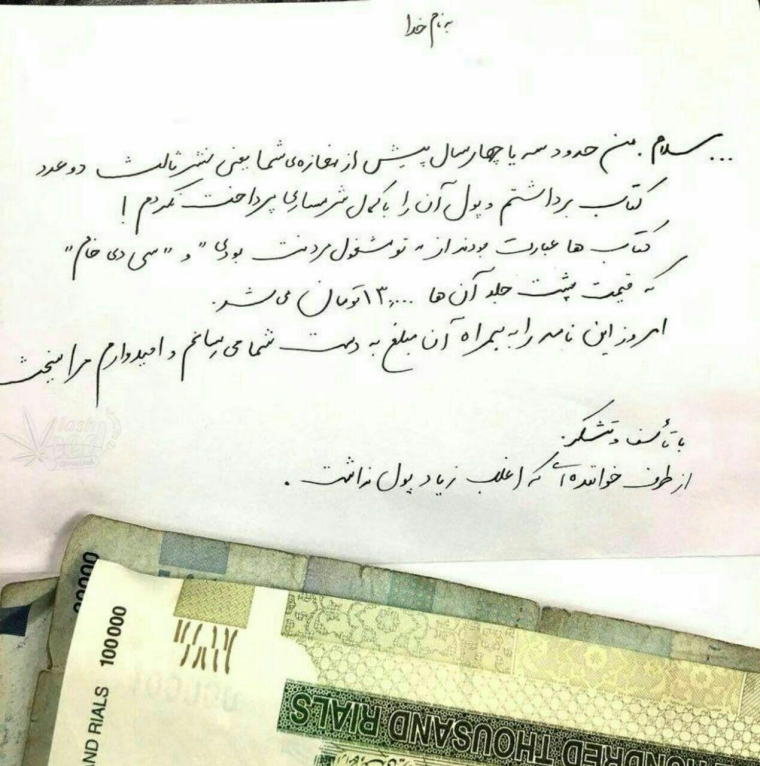 به نام خدا
... سلام. من حدود سه یا چهار سال پیش از مغازه‌ی شما یعنی نشر ثالث دو عدد
کتاب برداشتم و پول آن را با کمال شرمساری پرداخت نکردم!
کتاب ها عبارت بودند از "تو مشغول مردنت بودی" و "سی دی خام"
که قیمت پشت جلد آن ها ۱۳,۰۰۰ تومان می شد.
امروز این نامه را به همراه آن مبلغ به دست شما می رسانم و امیدوارم مرا ببخشید
با تأسف و تشکر.
از طرف خواننده ای که اغلب زیاد پول نداشت.
100000
HUNDRED THOUSAND RIALS
100000
ND RIALS